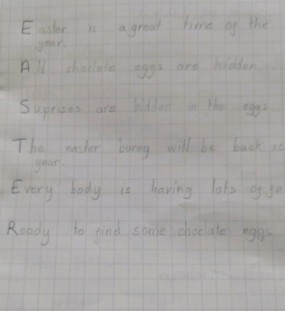 Easter is a great time of the
year.
All choclate eggs are hidden
Suprises are hidden in the eggs
The easter bunny will be back
year.
Every body is having lots of
Ready to find some choclate eggs